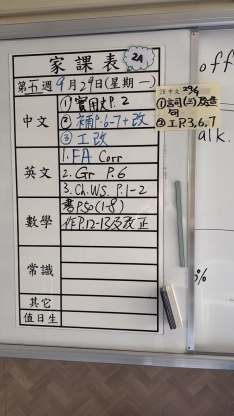 家課表
2A
第五週 9月29日(星期一)
中文
① 實用文P.2
② 補P.6-7+改
③ 工改
英文
1. FA Corr
2. Gr P.6
3. Ch.WS. P.1-2
數學
書P.50(1-8)
作P.12-13及改正
常識
其它
值日生
2B 中文 29/9
① 詞(三)及造句
② 工P.3,6,7
off
alk.
%